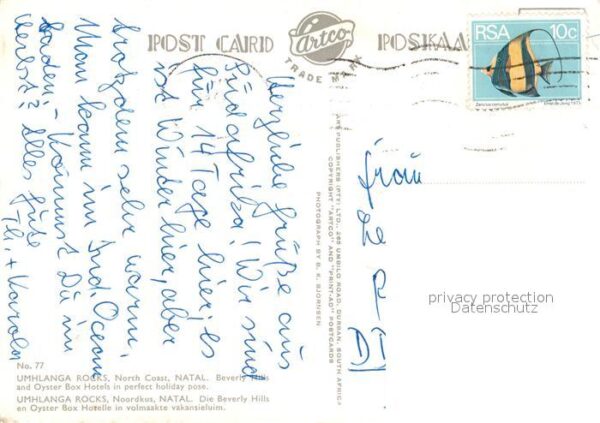 POST CARD
Artco
TRADE MARK
POSKAA
RSA 10c
Zanclus cornutus
Herzliche Grüße aus
Südafrika! Wir sind
für 14 Tage hier, es
ist Winter hier, aber
trotzdem sehr warm.
Man kann im Ind. Ocean
baden. – Kommst Du im
Herbst? Alles Gute
Th. + Karola
Frau
ART PUBLISHERS (PTY) LTD., UMBILO ROAD, DURBAN, SOUTH AFRICA
COPYRIGHT "ARTCO" AND "PRINT-AD" POSTCARDS
PHOTOGRAPH BY B. K. BJORNSEN
privacy protection
Datenschutz
No. 77
UMHLANGA ROCKS, North Coast, NATAL. Beverly Hills
and Oyster Box Hotels in perfect holiday pose.
UMHLANGA ROCKS, Noordkus, NATAL. Die Beverly Hills
en Oyster Box Hotelle in volmaakte vakansieluim.